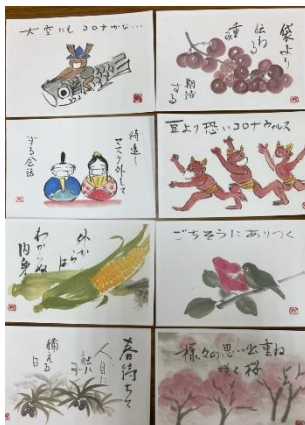 大空にもコロナかな…
袋より
伝わる
重
期待
する
待遠し
マスク外して
する会話
豆より恐いコロナウィルス
外から
は
わからぬ
内身
ごちそうにありつく
春待ちて
人目に
鮎に
構える
日
様々の思い出重ね
咲く桜